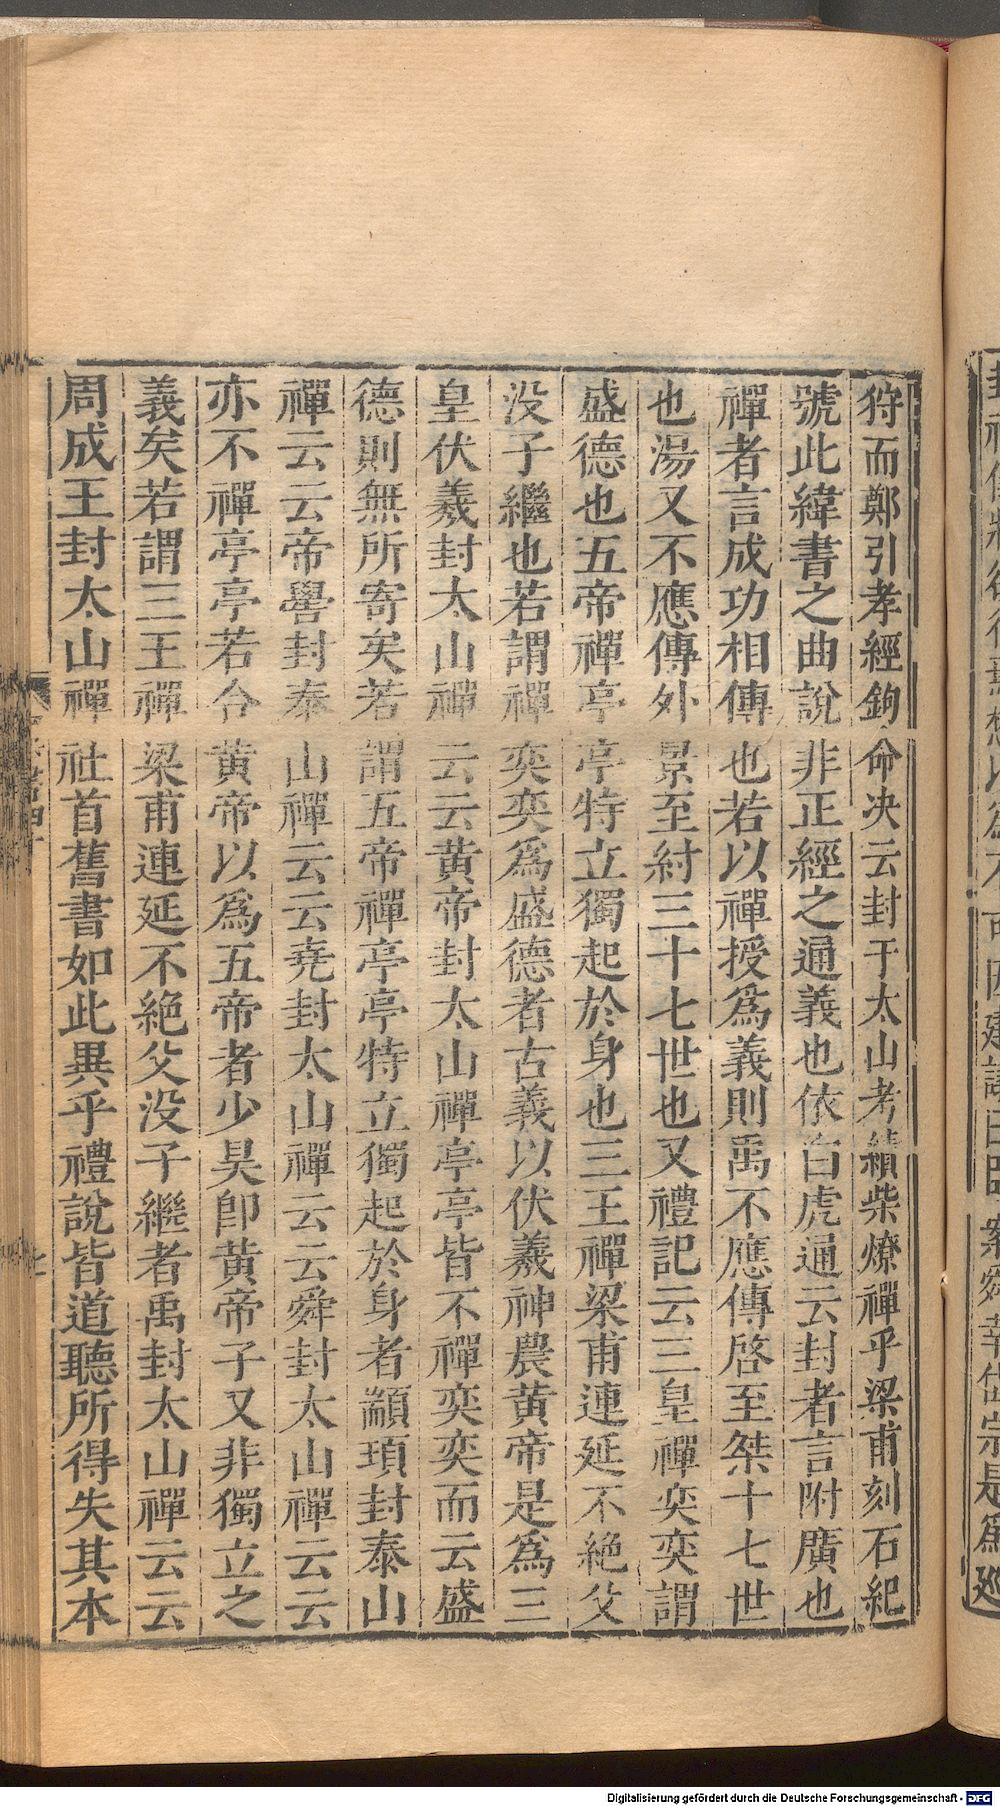 狩而鄭引孝經鉤命决云封于太山考績柴燎禪乎梁甫刻石紀
號此緯書之曲說非正經之通義也依白虎通云封者言附廣也
禪者言成功相傳也若以禪授爲義則禹不應傳啓至桀十七世
也湯又不應傳外景至紂三十七世也又禮記云三皇禪奕奕謂
盛德也五帝禪亭亭特立獨起於身也三王禪梁甫連延不絶父
没子繼也若謂禪奕奕爲盛德者古義以伏羲神農黄帝是爲三
皇伏羲封太山禪云云黄帝封太山禪亭亭皆不禪奕奕而云盛
德則無所寄矣若謂五帝禪亭亭特立獨起於身者顓頊封泰山
禪云云帝嚳封泰山禪云云堯封太山禪云云舜封太山禪云云
亦不禪亭亭若合黄帝以爲五帝者少昊卽黄帝子又非獨立之
義矣若謂三王禪梁甫連延不絶父没子繼者禹封太山禪云云
周成王封太山禪社首舊書如此異乎禮說皆道聽所得失其本
Digitalisierung gefördert durch die Deutsche Forschungsgemeinschaft - DFG